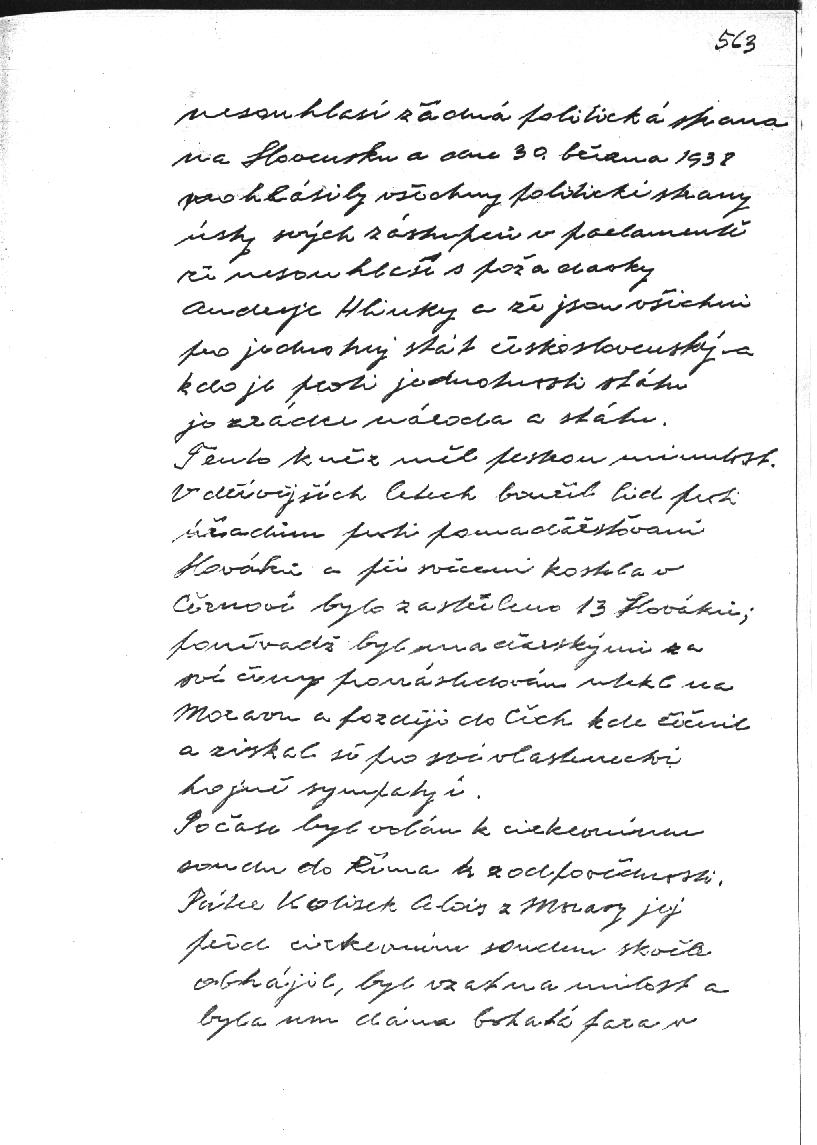 563
nesouhlasí žádná politická strana
na Slovensku a dne 30. března 1938
prohlásily všechny politické strany
ústy svých zástupců v parlamentě
že nesouhlasí s požadavky
Andreje Hlinky a že jsou všichni
pro jednotný stát československý a
kdo je proti jednotnosti státu
je zrádcem národa a státu.
Tento kněz měl pestrou minulost.
V dřívějších letech bouřil lid proti
úřadům proti pomaďarštování
Slováků a při svěcení kostela v
Černové bylo zastřeleno 13 Slováků;
poněvadž byl maďarskými za
své činy pronásledován utekl na
Moravu a později do Čech kde
a získal si pro své vlastenectví
hojně sympatyí.
Počase byl volán k církevnímu
soudu do Říma k zodpovědnosti.
Páter Kolísek Alois z Moravy jej
před církevním soudem skvěle
obhájil, byl vzat na milost a
byla mu dána bohatá fara v